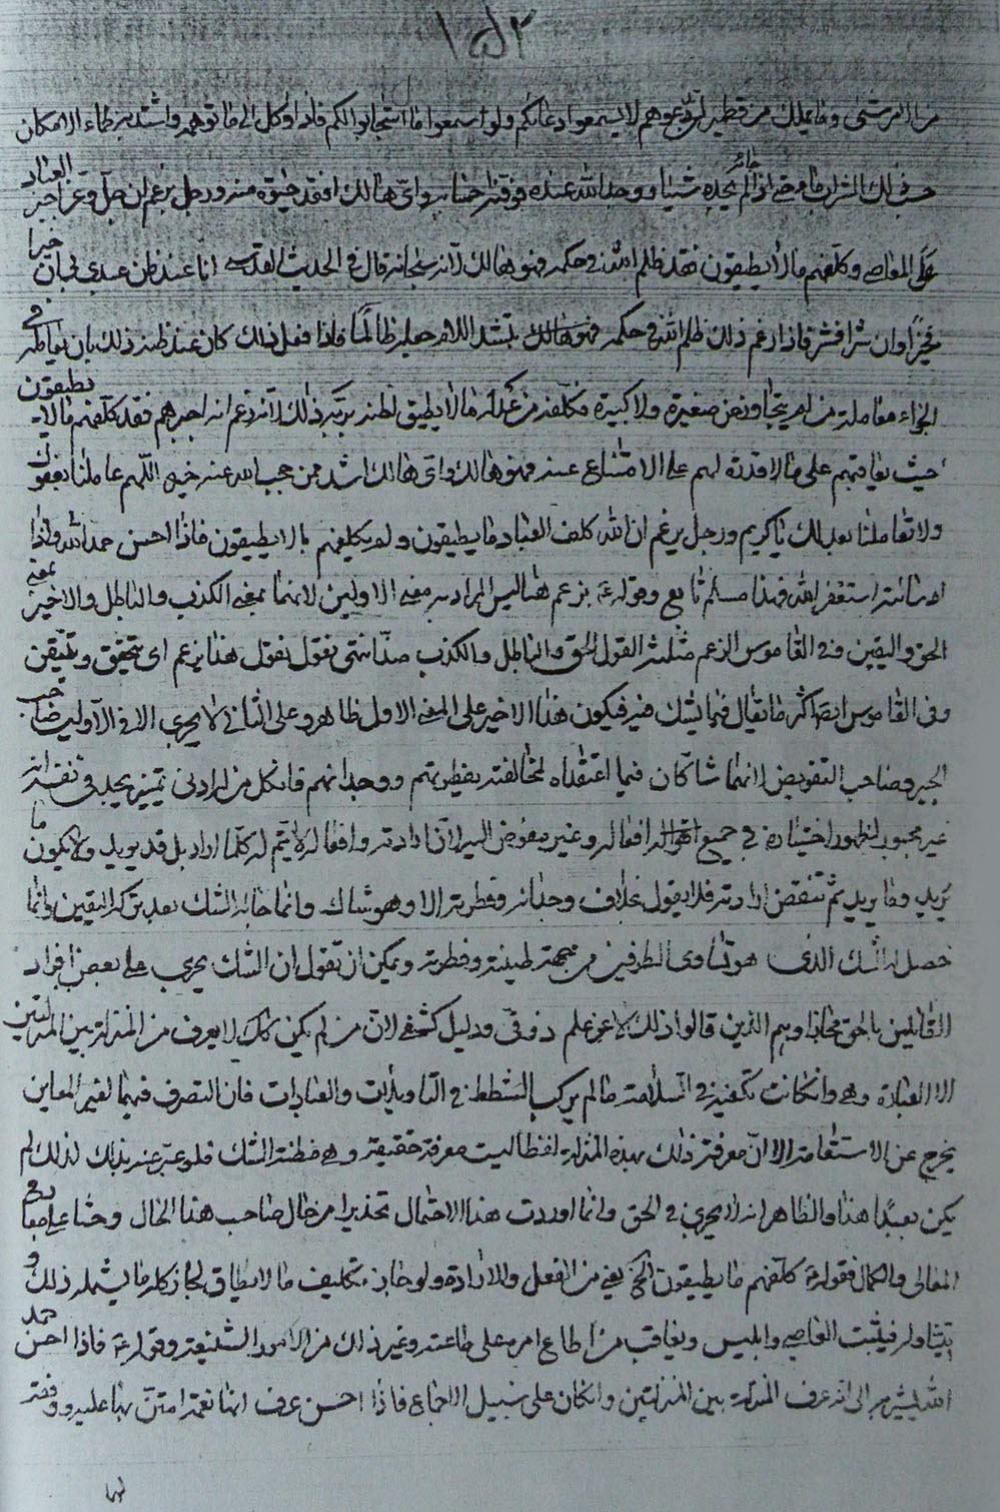 ١٥٢
من الامر شئ وما يملك من قطمير ان تدعوهم لا يسمعوا دعائكم ولو سمعوا ما استجابوا لكم فاذا وكل الى ما توهمه واشتد به ظماء الامكان
حسب ذلك السراب ماء حتى اذا جائه لم يجده شيئا ووجد الله عنده فوفيه حسابه واى هالك افقد حقيقة منه ورجل يزعم ان الله جل وعز اجبر العباد
على المعاصى وكلفهم ما لا يطيقون فقد ظلم الله فى حكمه فهو هالك لانه سبحانه قال فى الحديث القدسى انا عند ظن عبدى بى ان خيرا
فخيرا وان شرا فشر فاذا زعم ذلك ظلم الله فى حكمه فهو هالك بتشديد اللام جعله ظالما فاذا فعل ذلك كان عند ظنه ذلك بان يعامله فى
الجزاء معاملة من لم يتجاوز عن صغيرة ولا كبيرة فكلفه من عدله ما لا يطيق لظنه بربه ذلك لانه زعم انه اجبرهم فقد كلفهم ما لا يطيقون
حيث يعاقبهم على ما لا قدرة لهم على الامتناع عنه فهو هالك واى هالك اشد ممن حجب الله عنه خيره اللهم عاملنا بعفوك
ولا تعاملنا بعدلك يا كريم ورجل يزعم ان الله كلف العباد ما يطيقون ولم يكلفهم ما لا يطيقون فاذا احسن حمد الله واذا
اساء استغفر الله فهذا مسلم بالغ وقوله ع يزعم هنا ليس المراد به معنى الاولين لانهما بمعنى الكذب والباطل والاخير بمعنى
الحق واليقين ففى القاموس الزعم مثلثة القول الحق والباطل والكذب ضد انتهى نقول بقول هذا يزعم اى يتحقق ويتيقن
وفى القاموس ايضا اكثر ما يقال فيما يشك فيه فيكون هذا الاخير على المعنى الاول ظاهر وعلى الثانى لا يجرى الا فى الاولين صاحب
الجبر وصاحب التفويض لانهما شاكان فيما اعتقداه لمخالفته بفطرتهم ووجدانهم فان كل من له ادنى تميز يجد فى نفسه انه
غير مجبور لظهور اختياره فى جميع اقواله وافعاله وغير مفوض اليه لان ارادته وافعاله لا يتم له كلما اراد بل قد يريد ولا يكون ما
يريد وما يريد ثم تنتقض ارادته فلا يقول بخلاف وجدانه وفطرته الا وهو شاك وانما جائه الشك بعد تركه اليقين وانما
حصل له الشك الذى هو تساوى الطرفين من جهة طبيعته وفطرته ويمكن ان نقول ان الشك يجرى على بعض افراد
القائلين بالحق مجازا وهم الذين قالوا ذلك لا عن علم ذوقى ودليل كشفى لان من لم يكن كذلك لا يعرف من المنزلة بين المنزلتين
الا العبارة وهى وان كانت تكفيه فى السلامة ما لم يركب الشطط فى التاويلات والعبارات فان التصرف فيهما لغير المعاين
يخرج عن الاستقامة الا ان معرفته ذلك بهذه المنزلة لفظا ليست معرفة حقيقة وهى مظنة الشك فلو عبر عنه بذلك لذلك لم
يكن بعيدا هذا والظاهر انه لا يجرى فى الحق وانما اوردت هذا الاحتمال تحذيرا من حال صاحب هذا الحال وحثا على
المعالى والكمال فقوله ع كلفهم ما يطيقون الخ يعنى من الفعل والارادة ولو جاز تكليف ما لا يطاق لجاز كلما يشمله ذلك و
يتناوله فيثبت العاصى وابليس ويعاقب من اطاع امره على طاعته وغير ذلك من الامور الشنيعة وقوله ع فاذا احسن حمد
الله يشير به الى انه عرف المنزلة بين المنزلتين وان كان على سبيل الاجماع فاذا احسن عرف انها نعمة امتن بها عليه ووفقه
لها